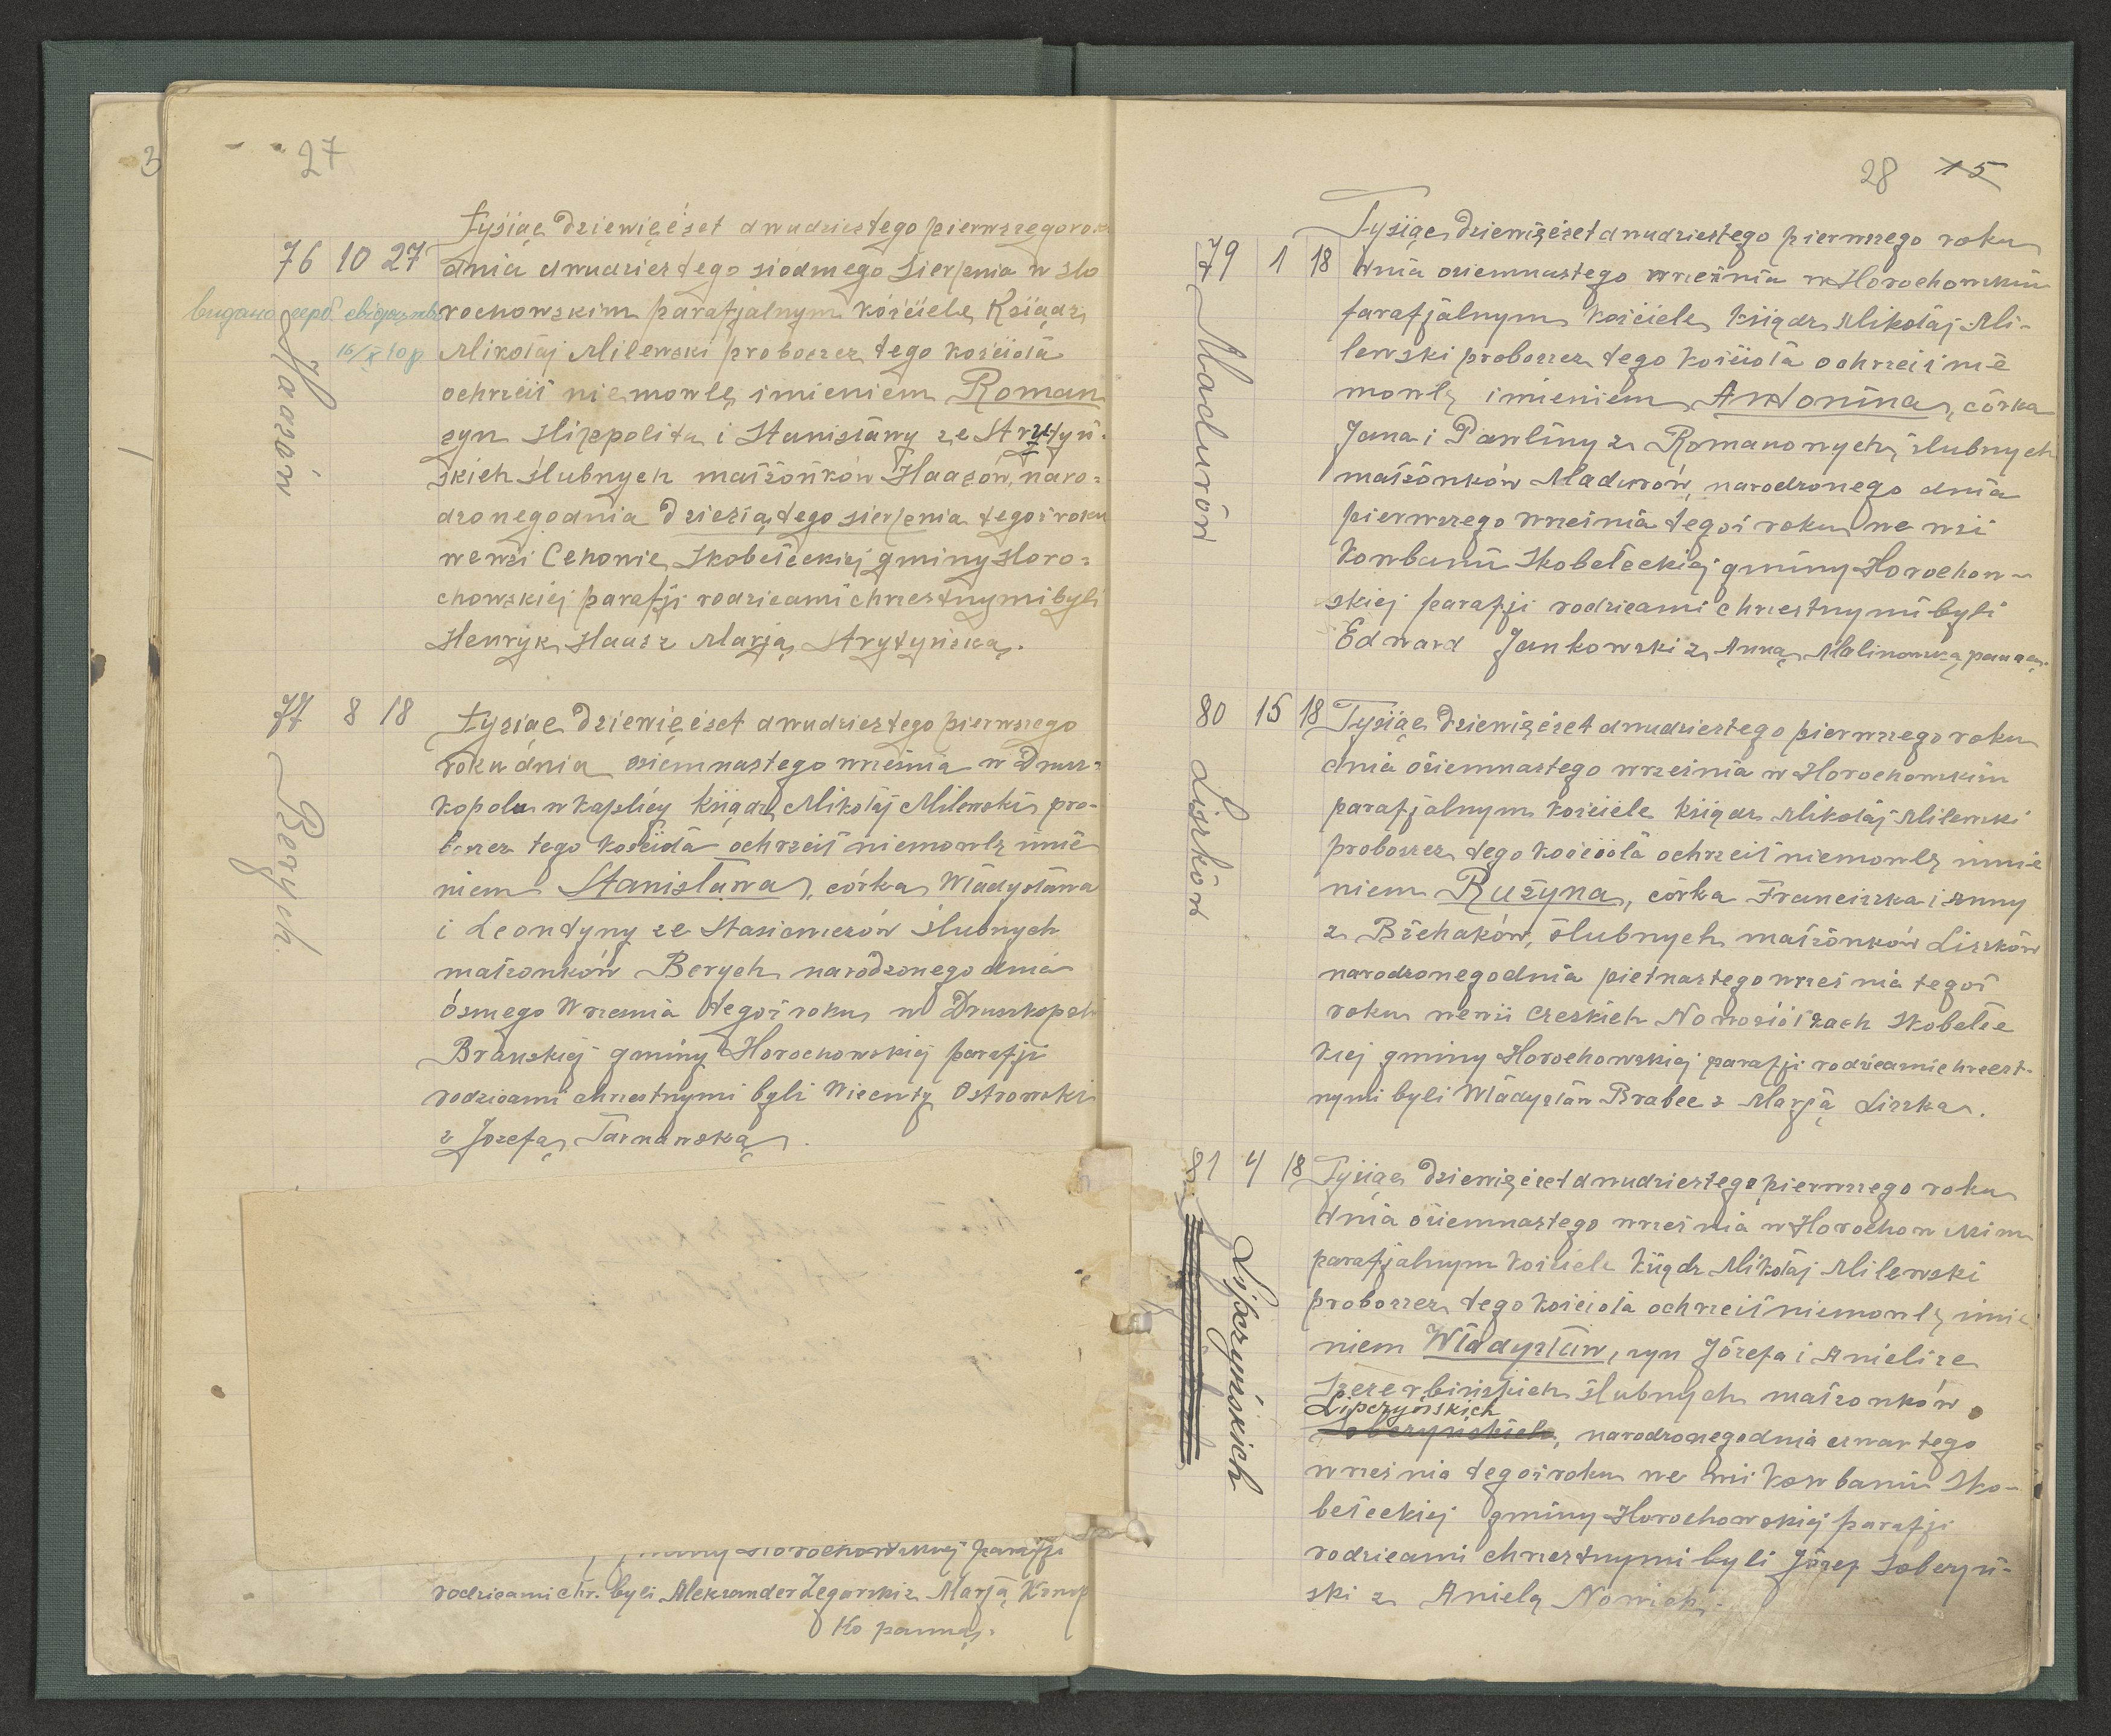 27
Tysiąc dziewięćset dwudziestego pierwszego roku
76 10 27 dnia dwudziestego siódmego sierpnia w Ho
rochowskim parafjalnym kościele Ksiądz
Mikołaj Milewski proboszcz tego kościoła
ochrzcił niemowlę imieniem Roman
syn Hippolita i Stanisławy ze Strytyń-
skich ślubnych małżonków Haazów, naro-
dzonego dnia dziesiątego sierpnia tegoż roku
we wsi Cehowie Skobełeckiej gminy Horo-
chowskiej parafji rodzicami chrzestnymi byli
Henryk Haas z Marją Strytyńską.
видано
16/X 40 р
Haazów
77 8 18 Tysiąc dziewięćset dwudziestego pierwszego
roku dnia osiemnastego września w Drusz-
kopolu w kaplicy ksiądz Mikołaj Milewski pro-
boszcz tego kościoła ochrzcił niemowlę imie
niem Stanisława, córka Władysława
i Leontyny ze Stasiewiczów ślubnych
małżonków Berych narodzonego dnia
ósmego Września tegoż roku w Druszkopolu
Brańskiej gminy Horochowskiej parafji
rodzicami chrzestnymi byli Wicenty Ostrowski
z Jozefą Tarnawską.
Berych.
gminy Horochowskiej parafji
rodzicami chr. byli Aleksander Zegarski z Marją Knop
ko panną.
28 15
Tysiąc dziewięćset dwudziestego pierwszego roku
79 1 18 dnia osiemnastego września w Horochowskim
parafjalnym kościele ksiądz Mikołaj Mi-
lewski proboszcz tego kościoła ochrzcił nie
mowlę imieniem Antonina, córka
Jana i Pawliny z Romanowych, ślubnych
małżonków Madurów, narodzonego dnia
pierwszego września tegoż roku we wsi
Kowbaniu Skobełeckiej gminy Horochow-
skiej parafji rodzicami chrzestnymi byli
Edward Jankowski z Anną Malinowską panną.
Madurów
80 15 18 Tysiąc dziewięćset dwudziestego pierwszego roku
dnia osiemnastego września w Horochowskim
parafjalnym kościele ksiądz Mikołaj Milewski
proboszcz tego kościoła ochrzcił niemowlę imie
niem Rużyna, córka Franciszka i Anny
z Bżehaków, ślubnych małżonków Liszków
narodzonego dnia pietnastego września tegoż
roku we wsi czeskich Nowosiółkach Skobełe
kiej gminy Horochowskiej parafji rodzicami chrzest-
nymi byli Władysław Brabec z Marją Liszka.
Liszków
81 4 18 Tysiąc dziewięćset dwudziestego pierwszego roku
dnia osiemnastego września w Horochowskim
parafjalnym kościele ksiądz Mikołaj Milewski
proboszcz tego kościoła ochrzcił niemowlę imie
niem Władysław, syn Józefa i Anieli ze
Szczerbińskich ślubnych małżonków
Lipczyńskich
Sobczyńskich, narodzonego dnia czwartego
września tegoż roku we wsi Kowbaniu Sko-
bełeckiej gminy Horochowskiej parafji
rodzicami chrzestnymi byli Józef Sobczyń-
ski z Anielą Nowich.
Lipczyńskich